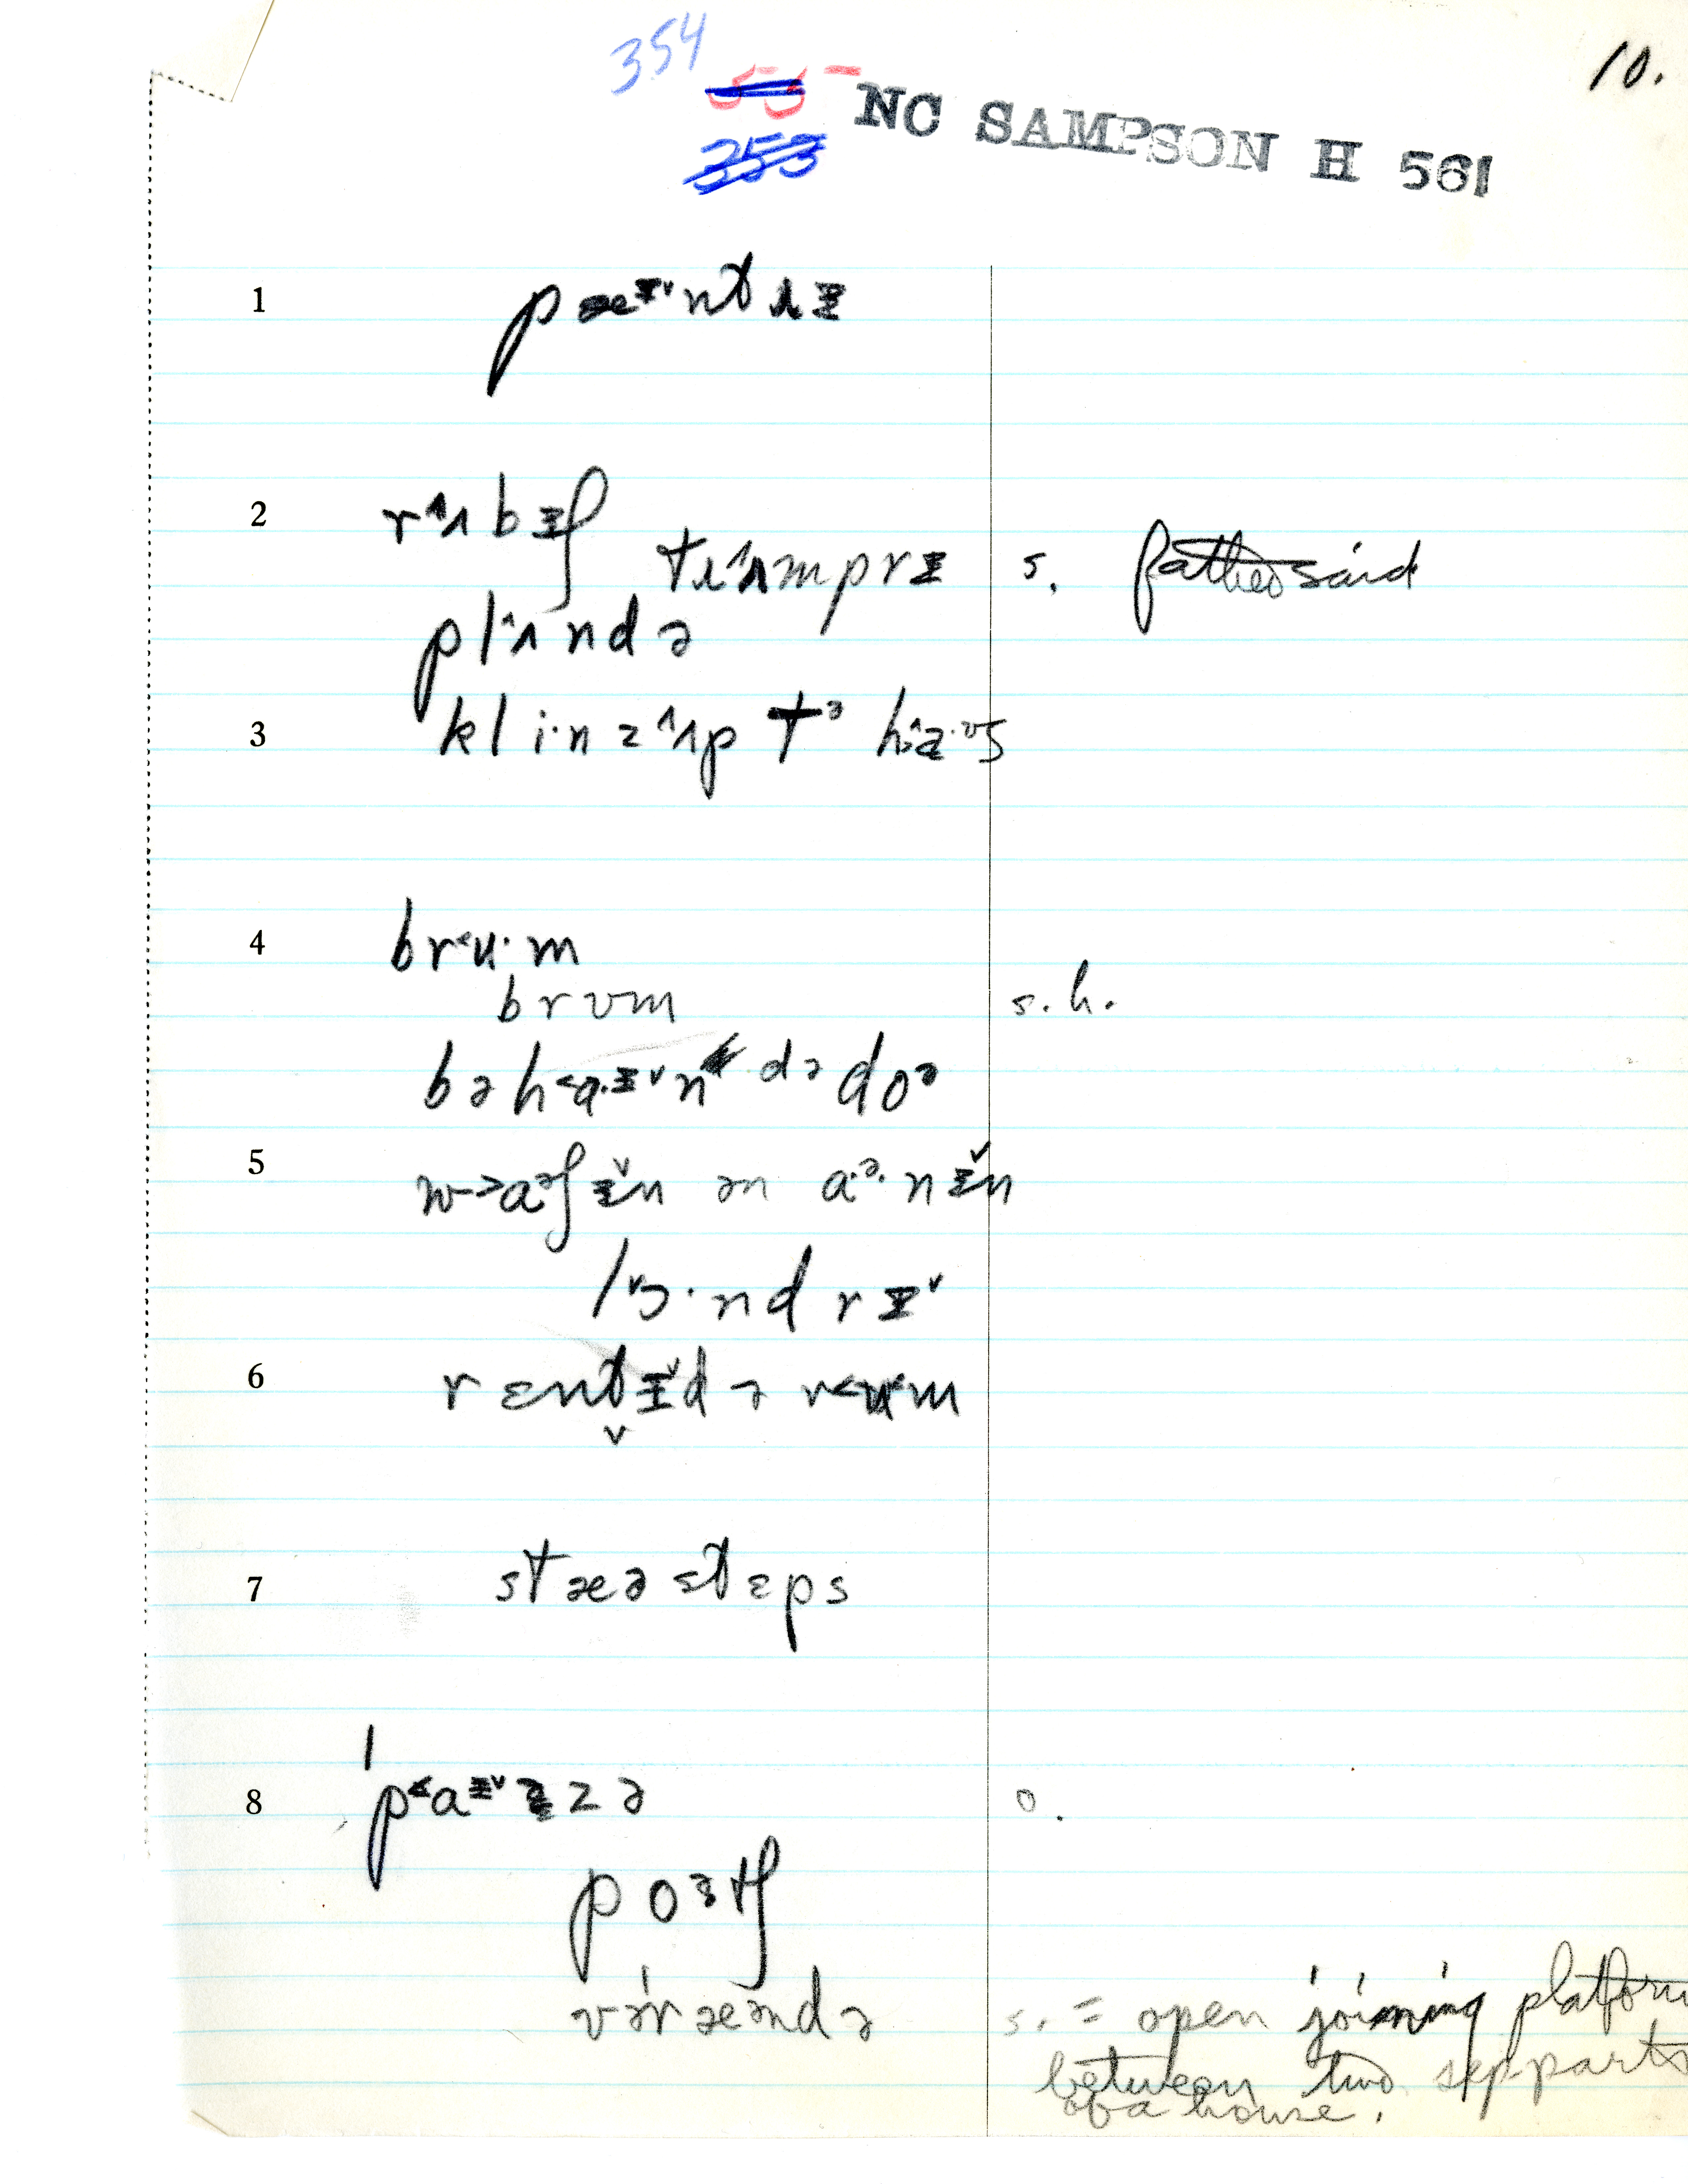 354
10.
55 NC SAMPSON H 561
253
1 pæɪ˅ntɹɪ
2 rʌbɪʃ
tɹʌmprɪ s. father said
plʌndə
3 kli·nz ʌp tᵊ haʊs
4 brʉ·m
brʊm s.h.
bəhaɪn də doᵊ
5 wɔᵊʃɪn ən aᵊ·nɪn
lɔ·ndrɪ
6 rɛntɪd ə rʉm
7 stæə stɛps
8 pɪaɪzə o.
poᵊtʃ
vəræəndə s. = open joining platform
between two sep parts
of a house.